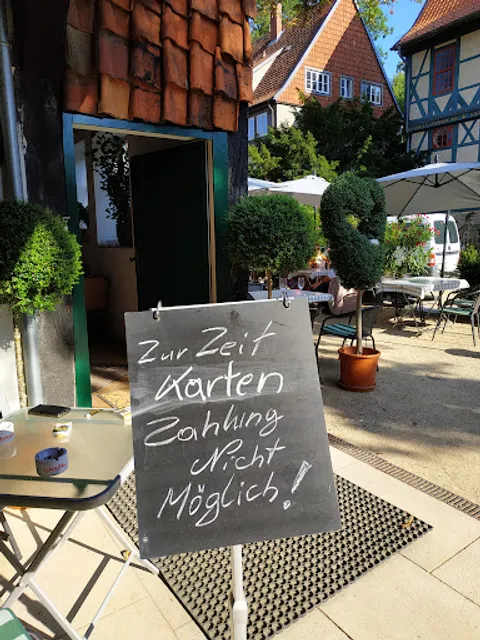 Zur Zeit
Karten
Zahlung
Nicht
Möglich!